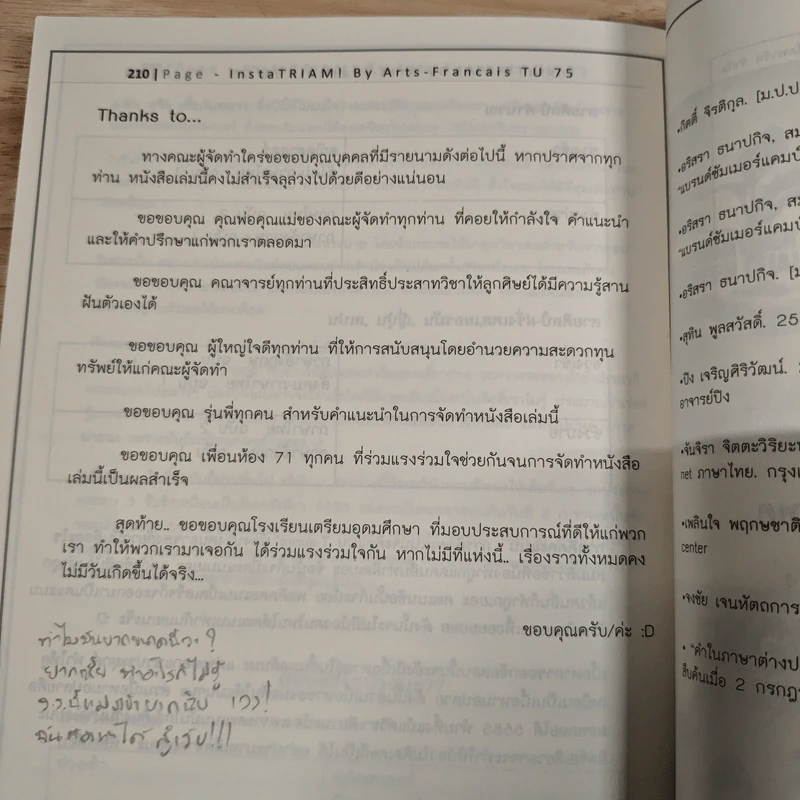 210 | Page - InstaTRIAM! By Arts-Francais TU 75
Thanks to...
ทางคณะผู้จัดทำใคร่ขอขอบคุณบุคคลที่มีรายนามดังต่อไปนี้ หากปราศจากทุก
ท่าน หนังสือเล่มนี้คงไม่สำเร็จลุล่วงไปด้วยดีอย่างแน่นอน
ขอขอบคุณ คุณพ่อคุณแม่ของคณะผู้จัดทำทุกท่าน ที่คอยให้กำลังใจ คำแนะนำ
และให้คำปรึกษาแก่พวกเราตลอดมา
ขอขอบคุณ คณาจารย์ทุกท่านที่ประสิทธิ์ประสาทวิชาให้ลูกศิษย์ได้มีความรู้สาน
ฝันตัวเองได้
ขอขอบคุณ ผู้ใหญ่ใจดีทุกท่าน ที่ให้การสนับสนุนโดยอำนวยความสะดวกทุน
ทรัพย์ให้แก่คณะผู้จัดทำ
ขอขอบคุณ รุ่นพี่ทุกคน สำหรับคำแนะนำในการจัดทำหนังสือเล่มนี้
ขอขอบคุณ เพื่อนห้อง 71 ทุกคน ที่ร่วมแรงร่วมใจช่วยกันจนการจัดทำหนังสือ
เล่มนี้เป็นผลสำเร็จ
สุดท้าย.. ขอขอบคุณโรงเรียนเตรียมอุดมศึกษา ที่มอบประสบการณ์ที่ดีให้แก่พวก
เรา ทำให้พวกเรามาเจอกัน ได้ร่วมแรงร่วมใจกัน หากไม่มีที่แห่งนี้.. เรื่องราวทั้งหมดคง
ไม่มีวันเกิดขึ้นได้จริง...
ขอบคุณครับ/ค่ะ :D
ทำไมมันยากขนาดนี้วะ?
ทำอะไรก็ไม่รู้
ร.ร.นี้
•กิตติ์ จิรติกุล. [ม.ป.ป
•อริสรา ธนาปกิจ, สม
"แบรนด์ซัมเมอร์แคมป์
•อริสรา ธนาปกิจ, สม
"แบรนด์ซัมเมอร์แคมป์
•อริสรา ธนาปกิจ. [ม
•สุทิน พูลสวัสดิ์. 25
•ปิง เจริญศิริวัฒน์.
อาจารย์ปิง
•จันจิรา จิตตะวิริยะ
net ภาษาไทย. กรุงเ
•เพลินใจ พฤกษชาติ
center
•จงชัย เจนหัตถการ
• "คำในภาษาต่างป
สืบค้นเมื่อ 2 กรกฎ